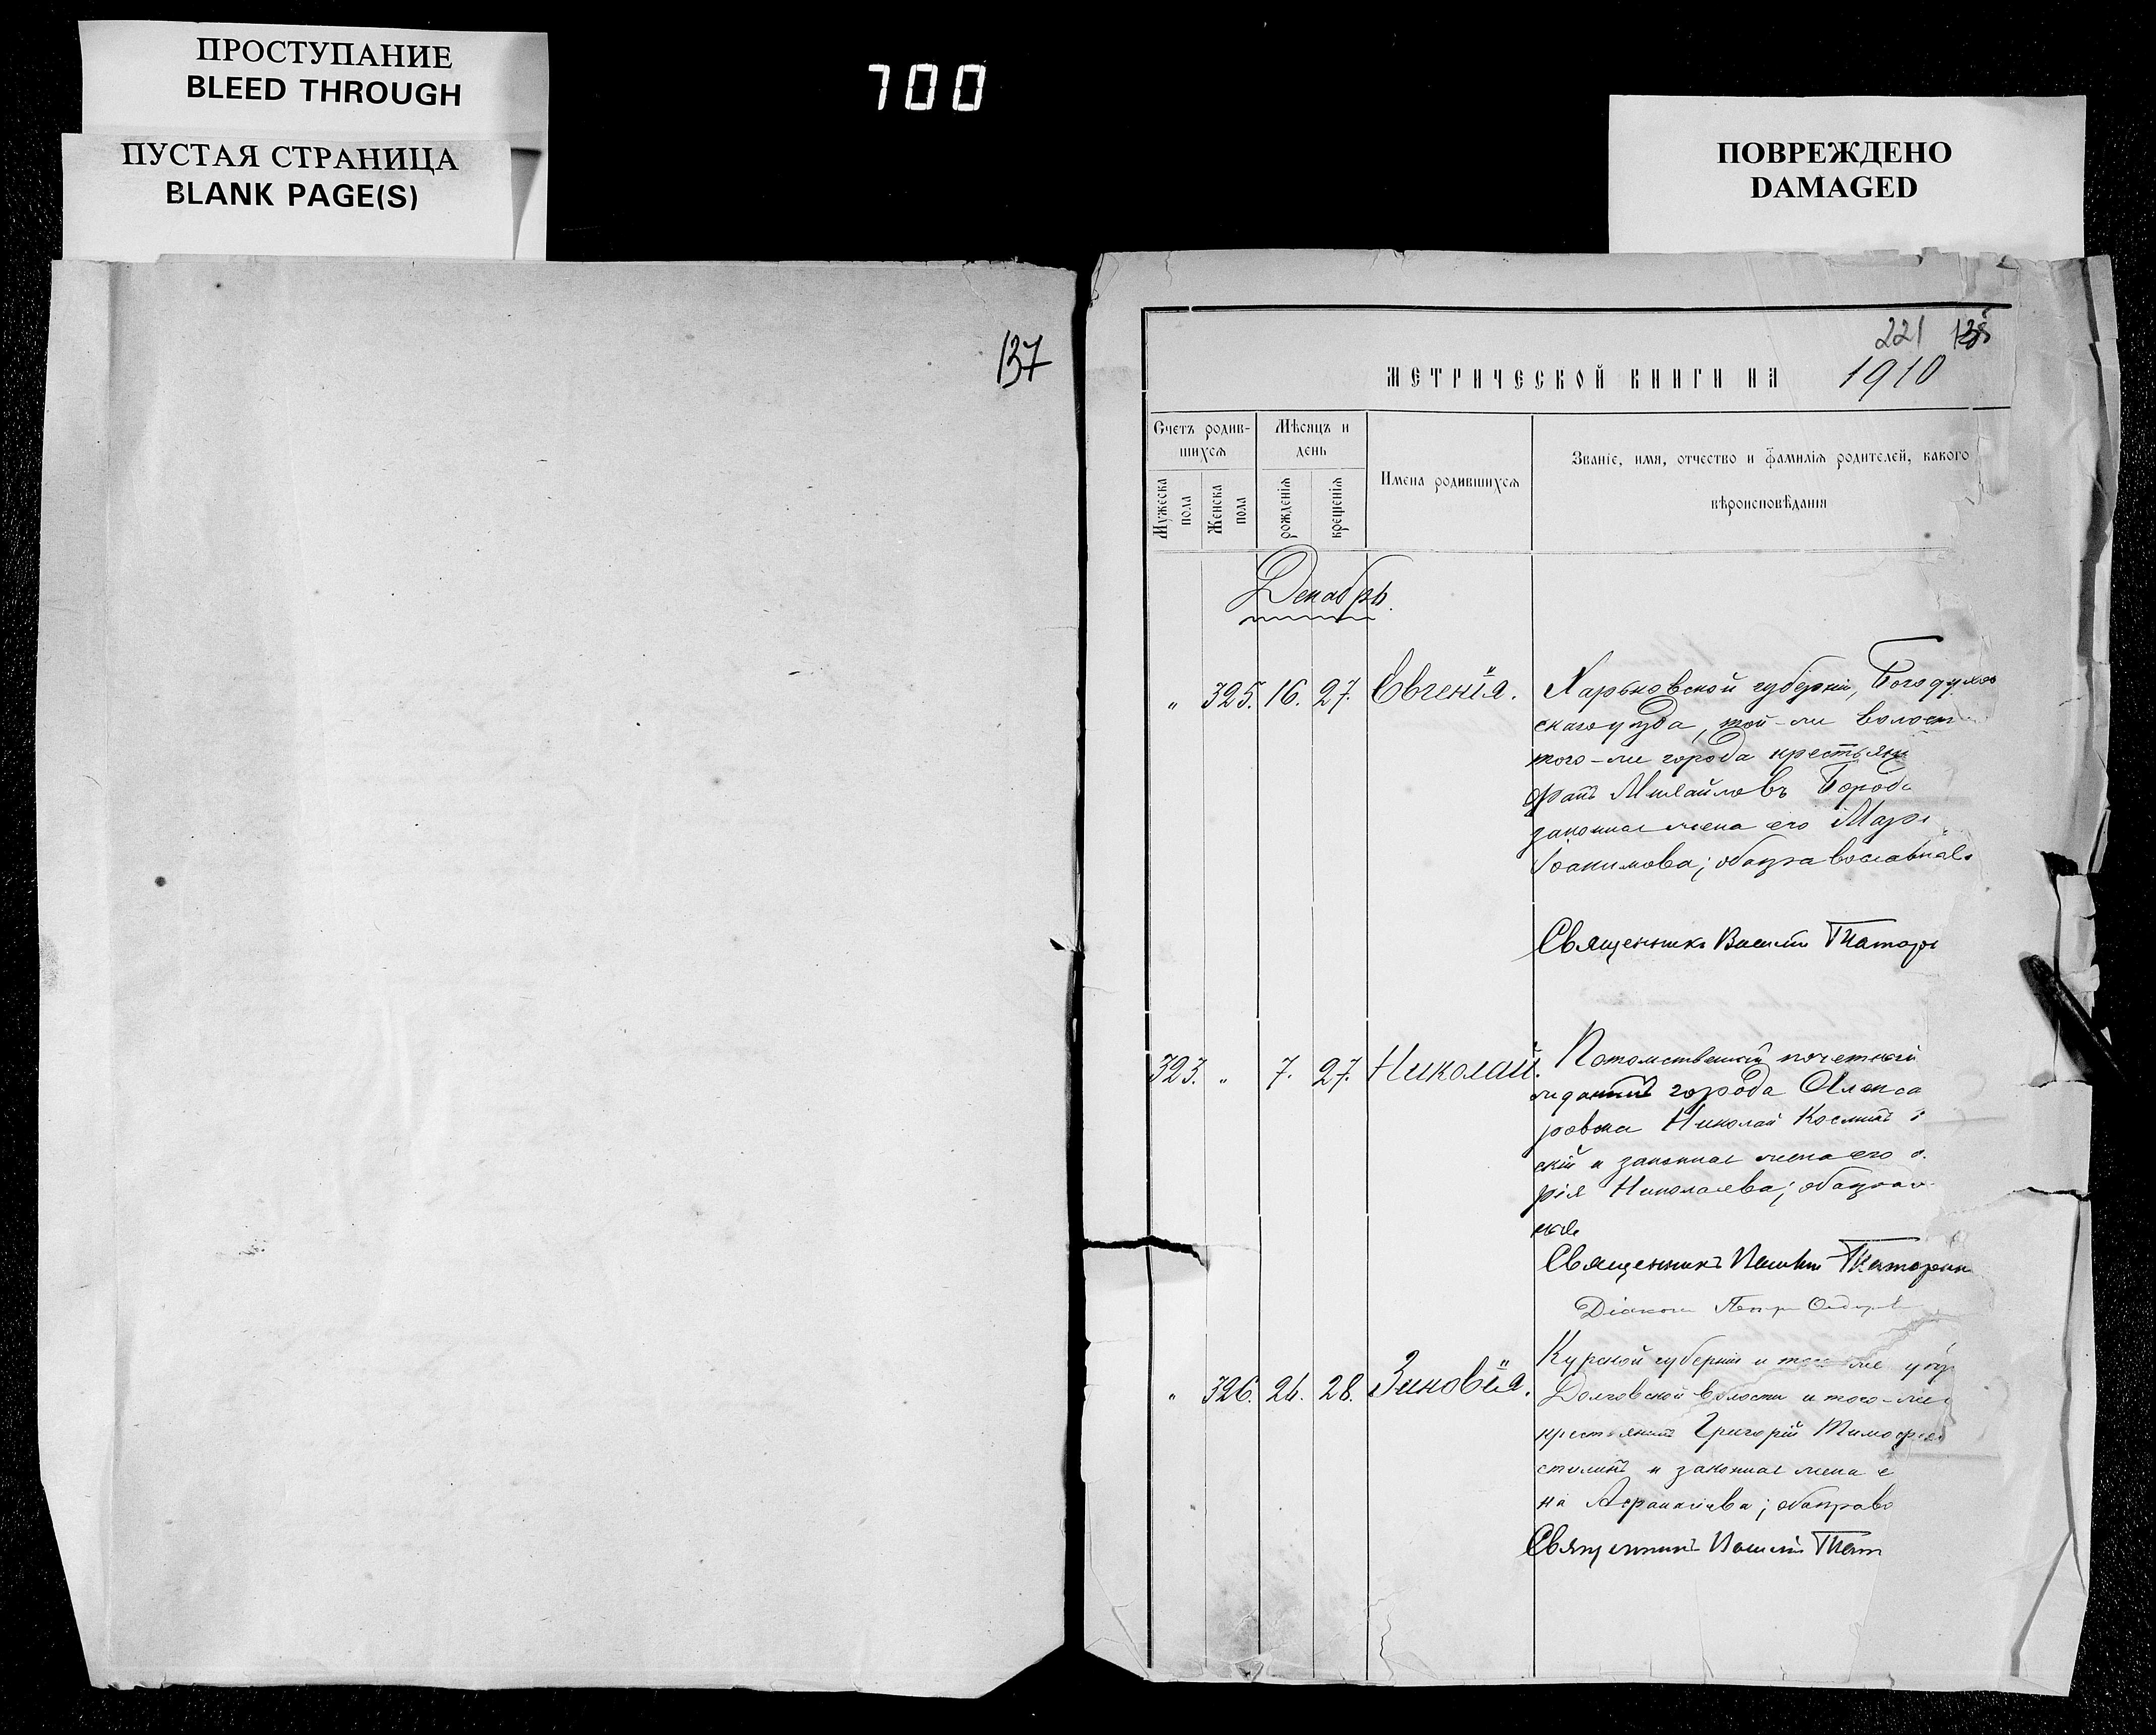 ПРОСТУПАНИЕ
BLEED THROUGH
ПУСТАЯ СТРАНИЦА
BLANK PAGE(S)
700
ПОВРЕЖДЕНО
DAMAGED
137
221 138
МЕТРИЧЕСКОЙ КНИГИ НА 1910
Счетъ родив-
шихся
Мужеска пола
Женска пола
Мѣсяцъ и
день
рожденія
крещенія
Имена родившихся
Званіе, имя, отчество и фамилія родителей, какого
вѣроисповѣданія
Декабрь.
" 325. 16. 27. Евгенія. Харьковской губерніи, Богодухов
скаго уѣзда, той-же волост
того-же города крестьян
Михайловъ Бород
законная жена его Мар
Іоакимова; оба православные
Священникъ Василій Татар
323. " 7. 27. Николай. Потомственный почетный
города Алекса
ровска Николай Косминъ
скій и законная жена его
рія Николаева; оба прав
ные
Священникъ Василій Татарин
Діаконъ Петръ
" 326. 26. 28. Зиновія. Курской губерніи и того же уѣз
Долговской волости и того-же
крестьянинъ Григорій Тимофее
и законная жена е
на Афанасіева; оба право
Священникъ Василій Тат